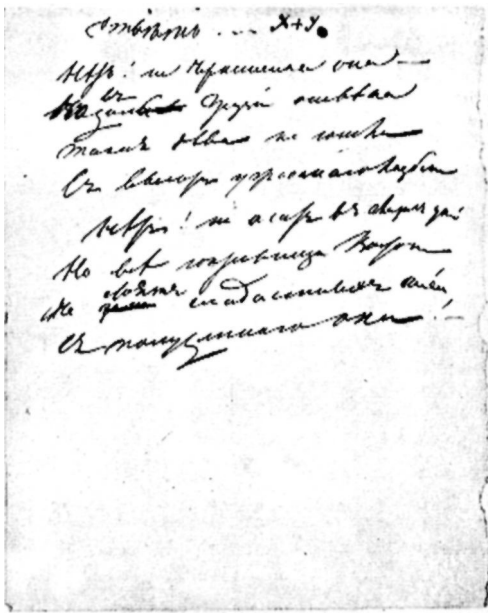 Отвѣтъ ... X+У.
Нѣтъ! не Черкешенка она —
Но въ долы Грузіи отъ вѣка
Такая дѣва не сошла
Съ высотъ угрюмаго Казбека
Нѣтъ! не агатъ въ глазахъ у ней
Но всѣ сокровища Востока
Не стоятъ сладостныхъ лучей
Ея полуденнаго ока! —